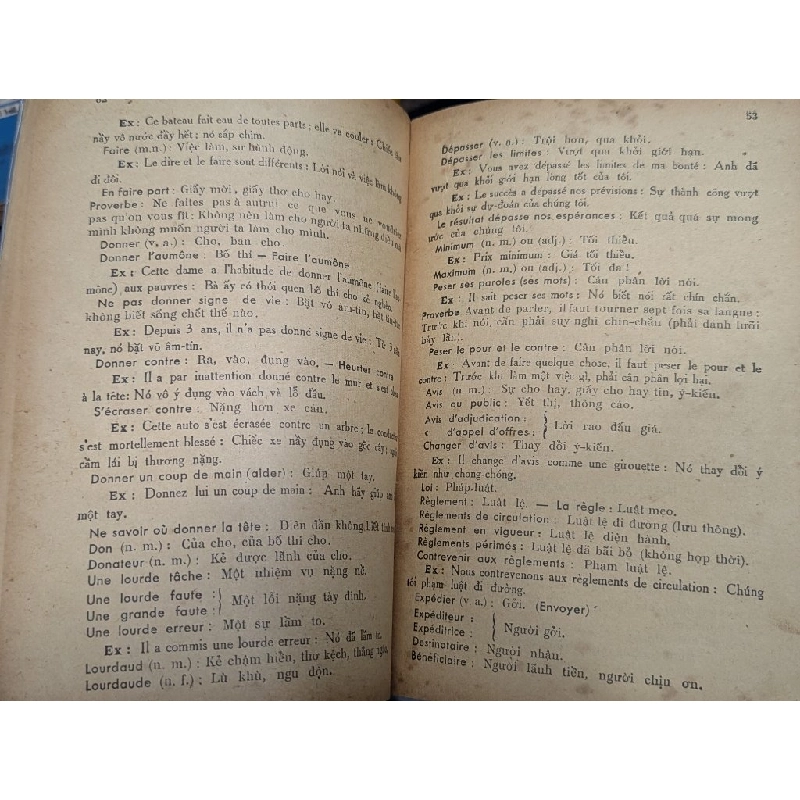 Ex : Ce bateau fait eau de toutes parts ; elle va couler : Chiếc
nầy vô nước đầy hết ; nó sắp chìm.
Faire (m.n.) : Việc làm, sự hành động.
Ex : Le dire et le faire sont différents : Lời nói và việc làm không
đi đôi.
En faire part : Giấy mời, giấy thơ cho hay.
Proverbe : Ne faites pas à autrui ce que vous ne voudriez
pas qu'on vous fît : Không nên làm cho người ta những điều mà
mình không muốn người ta làm cho mình.
Donner (v. a.) : Cho, ban cho
Donner l'aumône : Bố thí — Faire l'aumône
Ex : Cette dame a l'habitude de donner l'aumône (faire l'au-
mône), aux pauvres : Bà ấy có thói quen bố thí cho kẻ nghèo.
Ne pas donner signe de vie : Bặt vô âm-tín, biệt tin
không biết sống chết thế nào.
Ex : Depuis 3 ans, il n'a pas donné signe de vie : Từ 3 năm
nay, nó bặt vô âm-tín.
Donner contre : Ra, vào, đụng vào. — Heurter contre
Ex : Il a par inattention donné contre le mur et s'est
à la tête : Nó vô ý đụng vào vách và lỗ đầu.
S'écraser contre : Nặng hơn xe cán.
Ex : Cette auto s'est écrasée contre un arbre ; le conducteur
s'est mortellement blessé : Chiếc xe nầy đụng vào gốc cây ; người
cầm lái bị thương nặng.
Donner un coup de main (aider) : Giúp một tay.
Ex : Donnez lui un coup de main : Anh hãy giúp
một tay.
Ne savoir où donner la tête : Điên đần không biết tính
Don (n. m.) : Của cho, của bố thí cho.
Donateur (n. m.) : Kẻ được lãnh của cho.
Une lourde tâche : Một nhiệm vụ nặng nề.
Une lourde faute : } Một lỗi nặng tày đình.
Une grande faute :
Une lourde erreur : Một sự lầm to.
Ex : Il a commis une lourde erreur : Nó đã lầm to.
Lourdaud (n. m.) : Kẻ chậm hiền, thơ kệch, thằng ngốc.
Lourdaude (n. f.) : Lù khù, ngu độn.
53
Dépasser (v. a.) : Trội hơn, qua khỏi.
Dépasser les limites : Vượt qua khỏi giới hạn.
Ex : Vous avez dépassé les limites de ma bonté : Anh đã
vượt qua khỏi giới hạn lòng tốt của tôi.
Ex : Le succès a dépassé nos prévisions : Sự thành công vượt
qua khỏi sự dự-đoán của chúng tôi.
Le résultat dépasse nos espérances : Kết quả quá sự mong
ước của chúng tôi.
Minimum (n. m.) ou (adj.) : Tối thiểu.
Ex : Prix minimum : Giá tối thiểu.
Maximum (n. m.) ou (adj.) : Tối đa !
Peser ses paroles (ses mots) : Cân phân lời nói.
Ex : Il sait peser ses mots : Nó biết nói rất chín chắn.
Proverbe Avant de parler, il faut tourner sept fois sa langue :
Trước khi nói, cần phải suy nghĩ chín-chắn (phải đanh lưỡi
bảy lần).
Peser le pour et le contre : Cân phân lời nói.
Ex Avant de faire quelque chose, il faut peser le pour et le
contre : Trước khi làm một việc gì, phải cân phân lợi hại.
Avis (n m.) : Sự cho hay, giấy cho hay tin, ý-kiến.
Avis au public : Yết thị, thông cáo.
Avis d'adjudication : } Lời rao đấu giá.
« d'appel d'offres :
Changer d'avis : Thay đổi ý-kiến.
Ex : Il change d'avis comme une girouette : Nó thay đổi ý
kiến như chong-chóng.
Loi : Pháp-luật.
Règlement : Luật lệ. — La règle : Luật mẹo.
Règlements de circulation : Luật lệ đi đường (lưu thông).
Règlement en vigueur : Luật lệ hiện hành.
Règlements périmés : Luật lệ đã bãi bỏ (không hợp thời).
Contrevenir aux règlements : Phạm luật lệ.
Ex : Nous contrevenons aux règlements de circulation : Chúng
tôi phạm luật đi đường.
Expédier (v a.) : Gởi. (Envoyer)
Expéditeur : { Người gởi.
Expéditrice :
Destinataire : Người nhận.
Bénéficiaire : Người lãnh tiền, người chịu ơn.